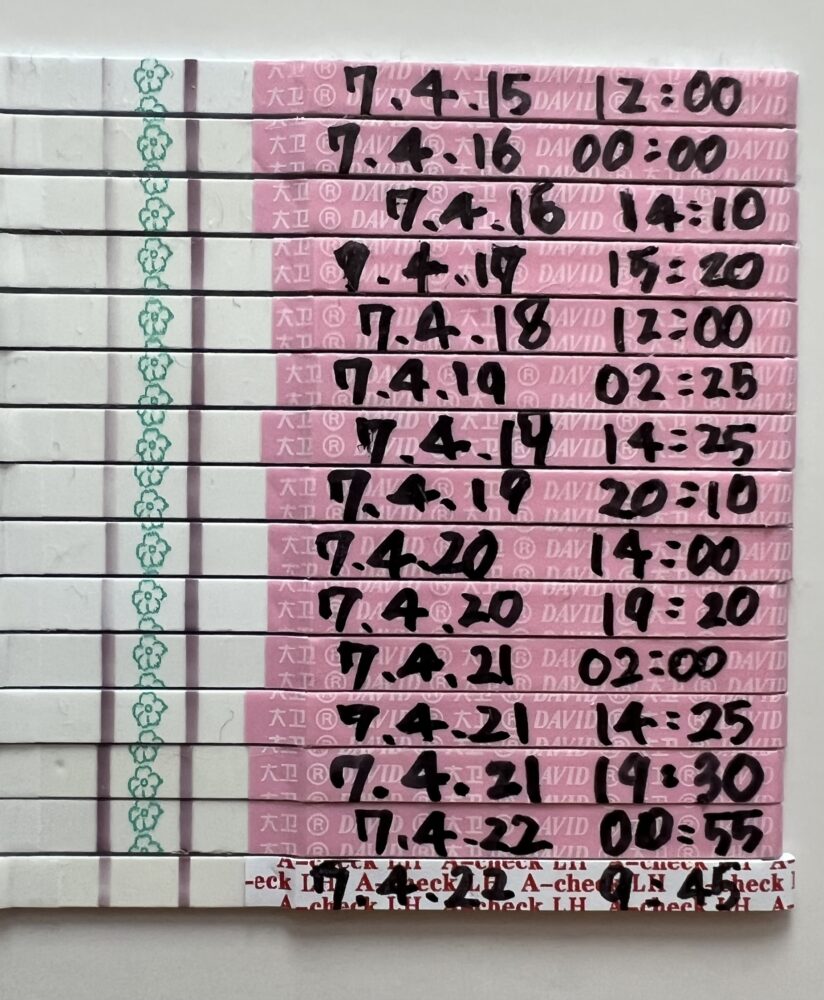 大卫 ® DAVID 7.4.15 12:00
大卫 ® DAVID 7.4.16 00:00
大卫 ® DAVID 7.4.16 14:10
大卫 ® DAVID 7.4.17 15:20
大卫 ® DAVID 7.4.18 12:00
大卫 ® DAVID 7.4.19 02:25
大卫 ® DAVID 7.4.19 14:25
大卫 ® DAVID 7.4.19 20:10
大卫 ® DAVID 7.4.20 14:00
大卫 ® DAVID 7.4.20 19:20
大卫 ® DAVID 7.4.21 02:00
大卫 ® DAVID 7.4.21 14:25
大卫 ® DAVID 7.4.21 19:30
大卫 ® DAVID 7.4.22 00:55
A-check LH 7.4.22 9:45